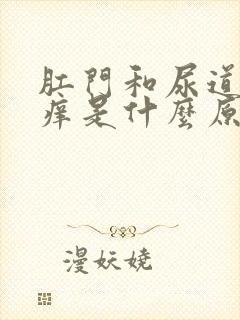 肛門和尿道
痒是什麽原
漫妖娆